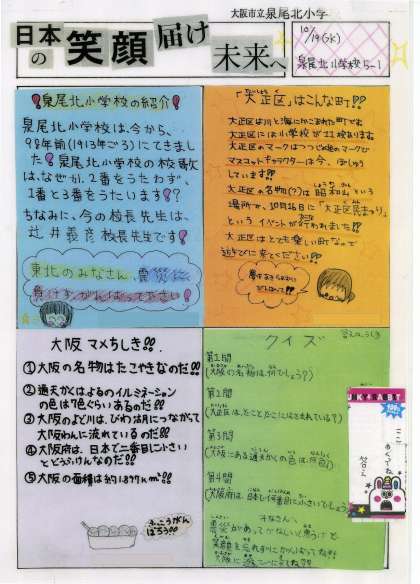 大阪市立泉尾北小学
日本の笑顔届け未来へ
10/19(水)
泉尾北小学校5-1
！泉尾北小学校の紹介！
泉尾北小学校は今から、
98年前(1913年ごろ)にできまし
た！泉尾北小学校の校歌
は、なぜか、2番をうたわず、
1番と3番をうたいます！？
ちなみに、今の校長先生は、
辻井義彦校長先生です！
東北のみなさん、震災に
負けずがんばってください！
「大正区」はこんな町!!
大正区は川と海にかこまれた町です。
大正区には小学校が11校あります。
大正区のマークはつつじ
マスコットキャラクターは今、ぼしゅう
しています!!
大正区の名物(?)は昭和山という
場所で、10月16日に「大正区民まつり」
というイベントが行われました!!
大正区はとても楽しい町なので
遊びに来てください!!
大阪マメちしき!!
①大阪の名物はたこやきなのだ!!
②通天かくはよるのイルミネーション
の色は7色ぐらいあるのだ!!
③大阪のよど川は、びわ湖につながって
大阪わんに流れているのだ!!
④大阪府は、日本で二番目に小さい
とどうふけんなのだ!!
⑤大阪の面積は約1897km²!!
ふっこうがん
ばろう!!
クイズ
第1問
(大阪の名物は何でしょう？)
第2問
(大正区は、たことたこにはさまれている？)
第3問
(大阪にある通天かくの色は何色)
第4問
(大阪府は、日本で何番目に小さいでしょう)
みなさんへ
震災があって
笑顔を忘れずに
大阪に遊びに来てね
JUNKY RABBIT
ここ
めくってね